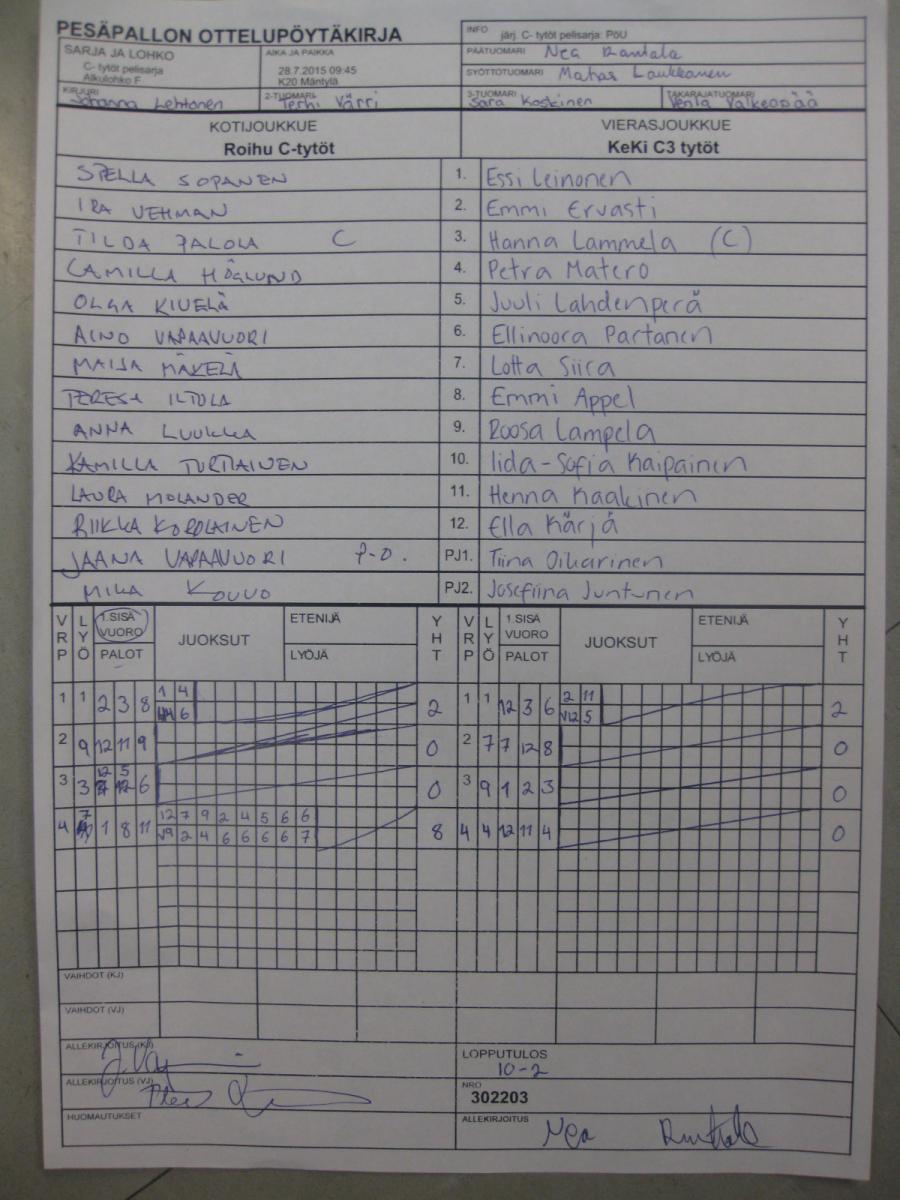 PESÄPALLON OTTELUPÖYTÄKIRJA
INFO järj. C- tytöt pelisarja: PöU
PÄÄTUOMARI Nea Rantala
SARJA JA LOHKO
C- tytöt pelisarja
Alkulohko F
AIKA JA PAIKKA
28.7.2015 09:45
K20 Mäntylä
SYÖTTÖTUOMARI Laukkanen
KIRJURI Johanna Lehtonen
2-TUOMARI Terhi Värri
3-TUOMARI Sara Koskinen
TAKARAJATUOMARI Venla Valkeapää
KOTIJOUKKUE
Roihu C-tytöt
VIERASJOUKKUE
KeKi C3 tytöt
STELLA SOPANEN 1. Essi Leinonen
IRA VEHMAN 2. Emmi Ervasti
TILDA PALOLA C 3. Hanna Lammela (C)
CAMILLA HÖGLUND 4. Petra Matero
OLGA KIVELÄ 5. Juuli Lahdenperä
AINO VAPAAVUORI 6. Ellinoora Partanen
MAIJA MÄKELÄ 7. Lotta Siira
TERESA ILTOLA 8. Emmi Appel
ANNA LUUKKA 9. Roosa Lampela
KAMILLA TURTIAINEN 10. Iida-Sofia Kaipainen
LAURA MOLANDER 11. Henna Kaakinen
RIIKKA KOROLAINEN 12. Ella Kärjä
JAANA VAPAAVUORI P-O. PJ1. Tiina Oikarinen
MIKA KOUVO PJ2. Josefiina Juntunen
VRP LYÖ 1.SISÄ VUORO PALOT JUOKSUT ETENIJÄ LYÖJÄ YHT VRP LYÖ 1.SISÄ VUORO PALOT JUOKSUT ETENIJÄ LYÖJÄ YHT
1 1 2 3 8 1 4 6 2 1 1 12 3 6 2 11 V12 5 2
2 9 12 11 9 0 2 7 7 12 8 0
3 3 12 5 6 0 3 9 1 2 3 0
4 7 1 8 11 12 7 9 2 4 5 6 6 8 4 4 12 11 4 0
V9 2 4 6 6 6 6 7
VAIHDOT (KJ)
VAIHDOT (VJ)
ALLEKIRJOITUS (KJ)
ALLEKIRJOITUS (VJ)
HUOMAUTUKSET
LOPPUTULOS
10-2
NRO
302203
ALLEKIRJOITUS
Nea Rantala